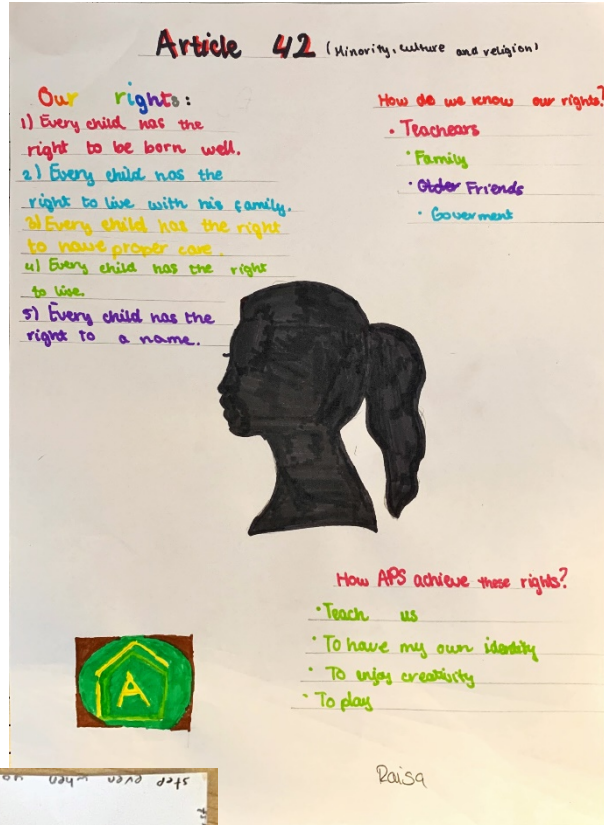 Article 42 (Minority, culture and religion)
Our rights:
1) Every child has the
right to be born well.
2) Every child has the
right to live with his family.
3) Every child has the right
to have proper care.
4) Every child has the right
to live.
5) Every child has the
right to a name.
How do we know our rights?
• Teachears
• Family
• Older Friends
• Goverment
How APS achieve these rights?
• Teach us
• To have my own identity
• To enjoy creativity
• To play
A
Raisa
step even when yo